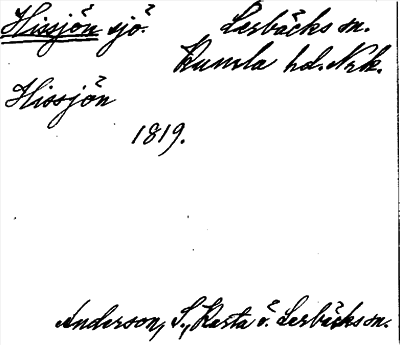 Hissjön sjö. Lerbäcks sn.
Kumla hd. Nrk.
Hissjön
1819.
Anderson, S., Karta ö. Lerbäcks sn.